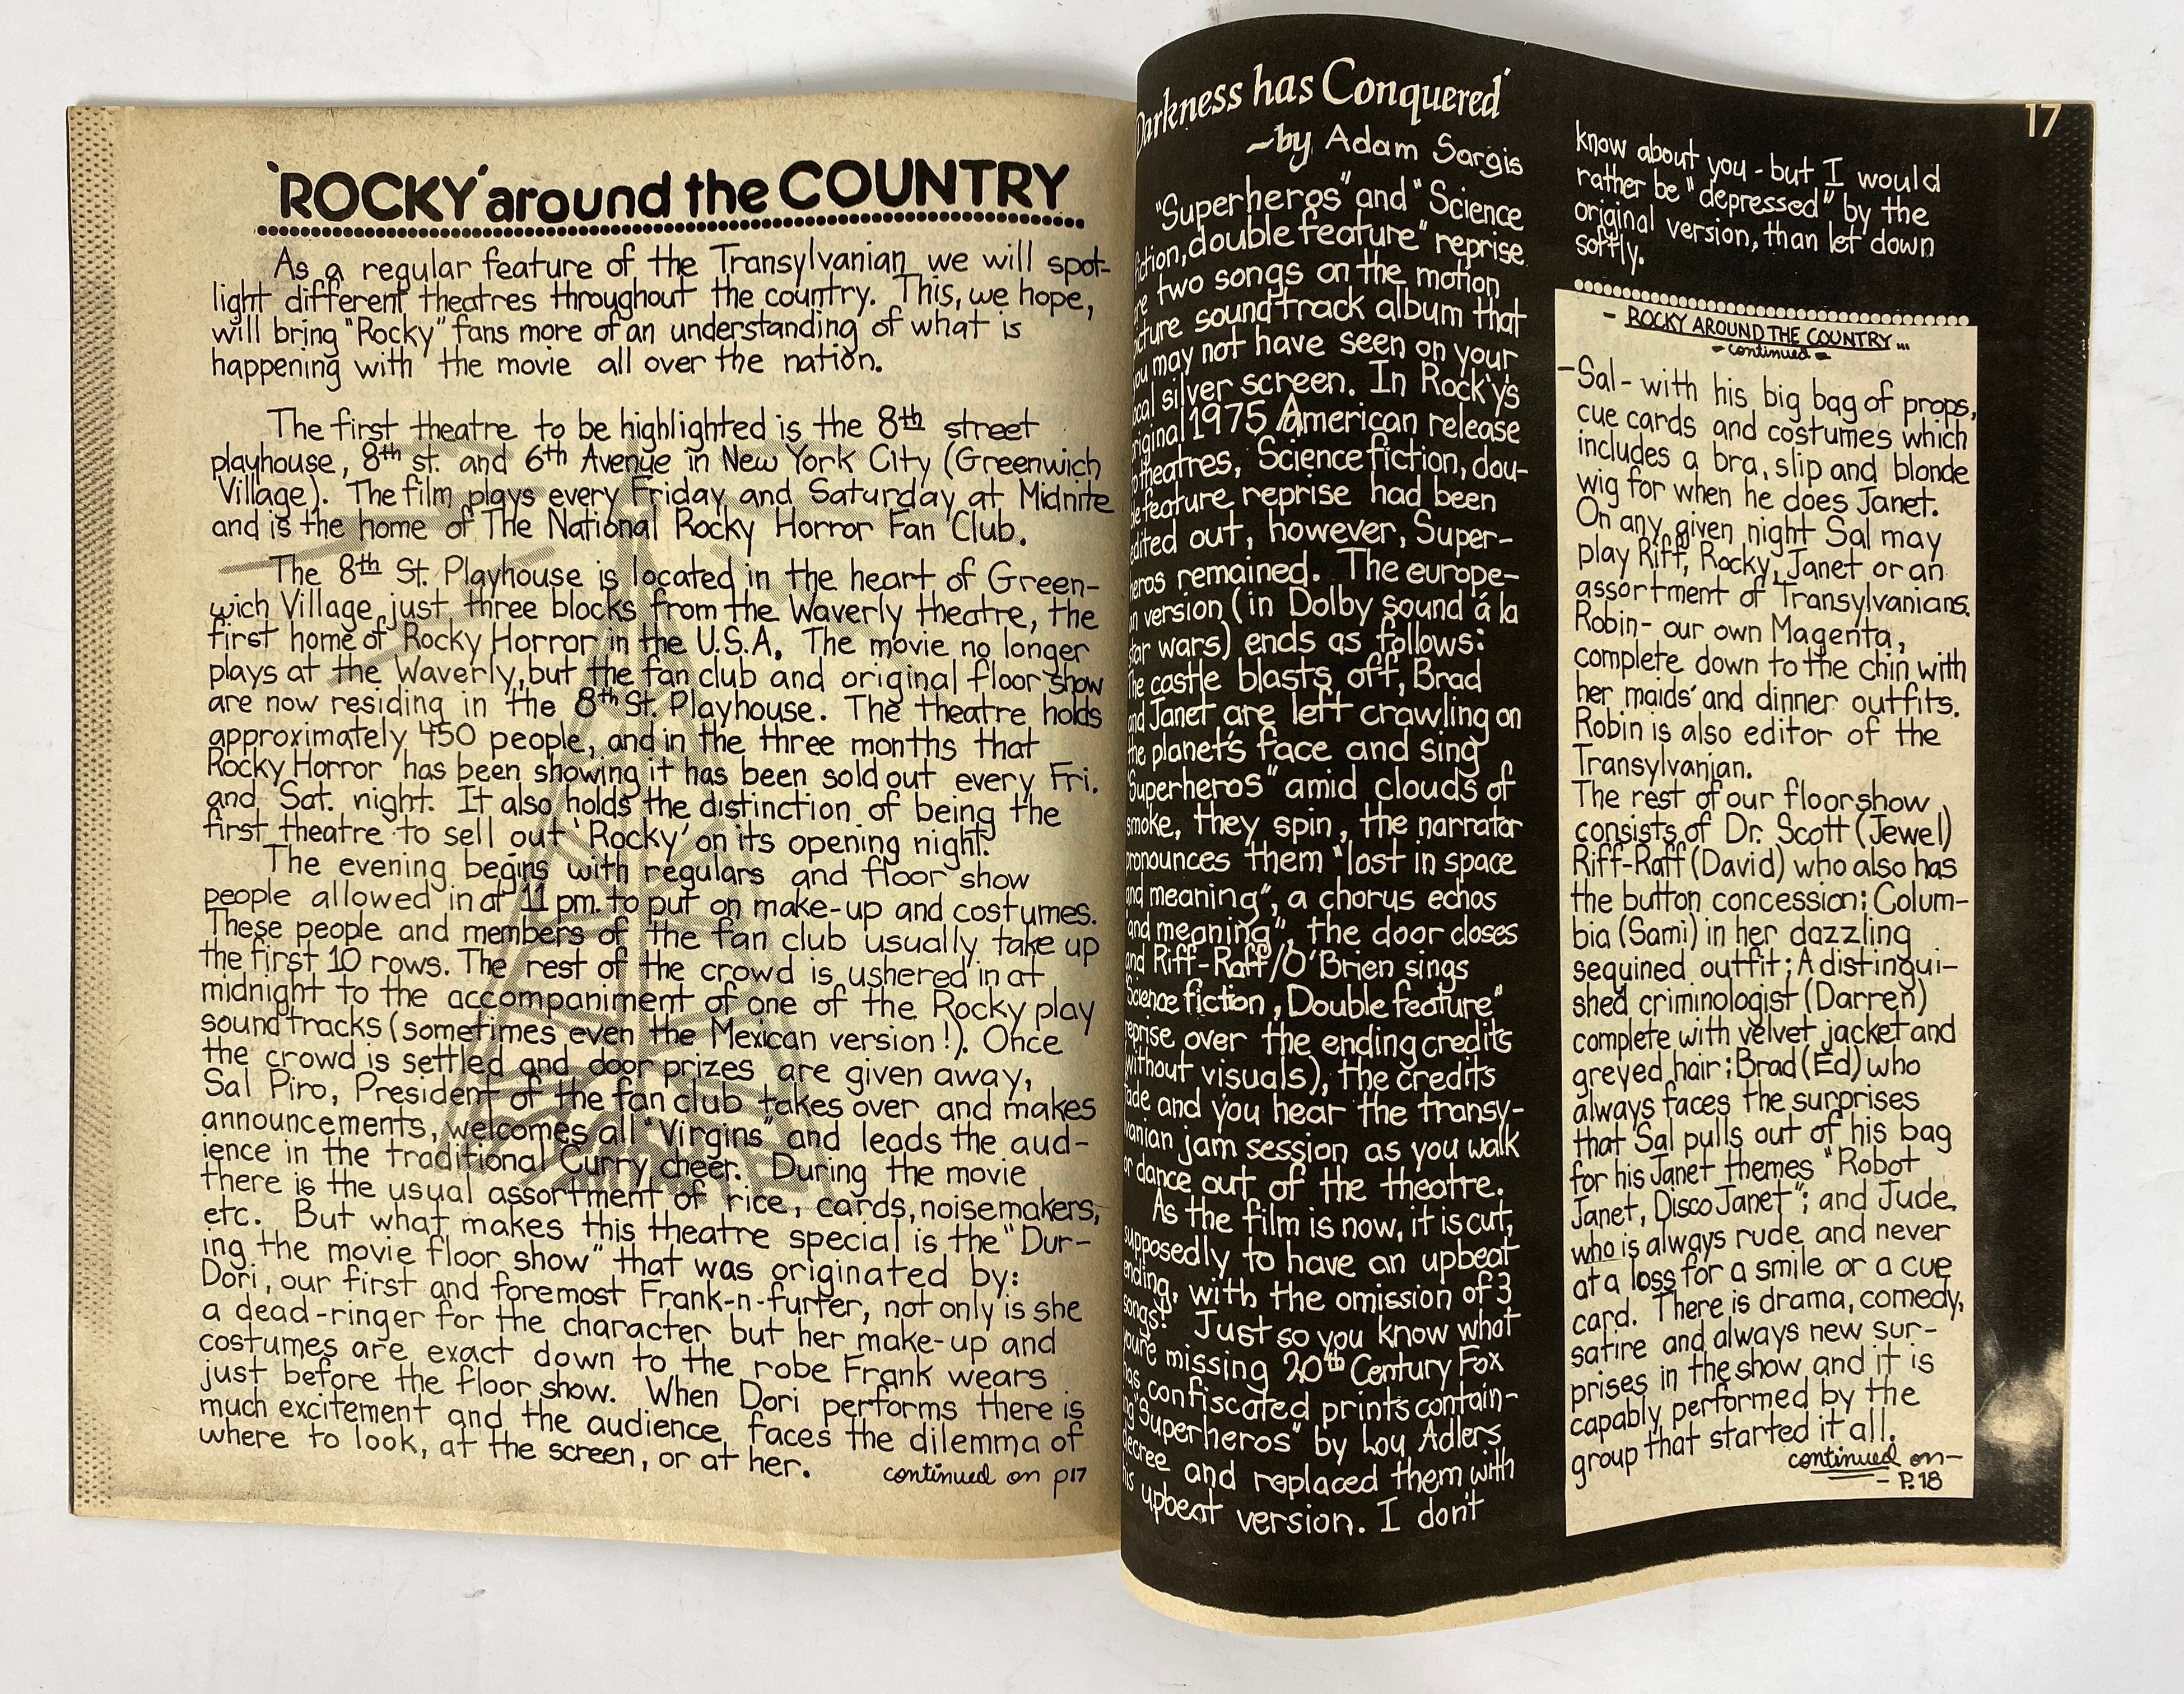 'ROCKY' around the COUNTRY
As a regular feature of the Transylvanian we will spot-
light different theatres throughout the country. This, we hope,
will bring "Rocky" fans more of an understanding of what is
happening with the movie all over the nation.
The first theatre to be highlighted is the 8th street
playhouse, 8th st. and 6th Avenue in New York City (Greenwich
Village). The film plays every Friday and Saturday at Midnite
and is the home of The National Rocky Horror Fan Club.
The 8th St. Playhouse is located in the heart of Green-
wich Village, just three blocks from the Waverly theatre, the
first home of Rocky Horror in the U.S.A. The movie no longer
plays at the Waverly, but the fan club and original floor show
are now residing in the 8th St. Playhouse. The theatre holds
approximately 450 people, and in the three months that
Rocky Horror has been showing it has been sold out every Fri.
and Sat. night. It also holds the distinction of being the
first theatre to sell out 'Rocky' on its opening night.
The evening begins with regulars and floor show
people allowed in at 11 pm. to put on make-up and costumes.
These people and members of the fan club usually take up
the first 10 rows. The rest of the crowd is ushered in at
midnight to the accompaniment of one of the Rocky play
soundtracks (sometimes even the Mexican version!). Once
the crowd is settled and door prizes are given away,
Sal Piro, President of the fan club takes over and makes
announcements, welcomes all "Virgins" and leads the aud-
ience in the traditional Curry cheer. During the movie
there is the usual assortment of rice, cards, noisemakers,
etc. But what makes this theatre special is the "Dur-
ing the movie floor show" that was originated by:
Dori, our first and foremost Frank-n-furter, not only is she
a dead-ringer for the character but her make-up and
costumes are exact down to the robe Frank wears
just before the floor show. When Dori performs there is
much excitement and the audience faces the dilemma of
where to look, at the screen, or at her.
continued on p17
Darkness has Conquered'
~by Adam Sargis
"Superheros" and "Science
fiction, double feature" reprise
are two songs on the motion
picture soundtrack album that
you may not have seen on your
local silver screen. In Rocky's
original 1975 American release
to theatres, Science fiction, dou-
ble feature reprise had been
edited out, however, Super-
heros remained. The europe-
an version (in Dolby sound á la
star wars) ends as follows:
The castle blasts off, Brad
and Janet are left crawling on
the planet's face and sing
"Superheros" amid clouds of
smoke, they spin, the narrator
pronounces them "lost in space
and meaning", a chorus echos
"and meaning", the door closes
and Riff-Raff/O'Brien sings
"Science fiction, Double feature"
reprise over the ending credits
(without visuals), the credits
fade and you hear the transy-
vanian jam session as you walk
or dance out of the theatre.
As the film is now, it is cut,
supposedly to have an upbeat
ending, with the omission of 3
songs! Just so you know what
you're missing 20th Century Fox
has confiscated prints contain-
ing "Superheros" by Lou Adlers
decree and replaced them with
his upbeat version. I don't
17
know about you - but I would
rather be "depressed" by the
original version, than let down
softly.
- ROCKY AROUND THE COUNTRY...
- continued -
-Sal - with his big bag of props,
cue cards and costumes which
includes a bra, slip and blonde
wig for when he does Janet.
On any given night Sal may
play Riff, Rocky, Janet or an
assortment of Transylvanians.
Robin - our own Magenta,
complete down to the chin with
her maids' and dinner outfits.
Robin is also editor of the
Transylvanian.
The rest of our floorshow
consists of Dr. Scott (Jewel)
Riff-Raff (David) who also has
the button concession; Colum-
bia (Sami) in her dazzling
sequined outfit; A distingui-
shed criminologist (Darren)
complete with velvet jacket and
greyed hair; Brad (Ed) who
always faces the surprises
that Sal pulls out of his bag
for his Janet themes "Robot
Janet, Disco Janet"; and Jude,
who is always rude and never
at a loss for a smile or a cue
card. There is drama, comedy,
satire and always new sur-
prises in the show and it is
capably performed by the
group that started it all.
continued on-
- P.18